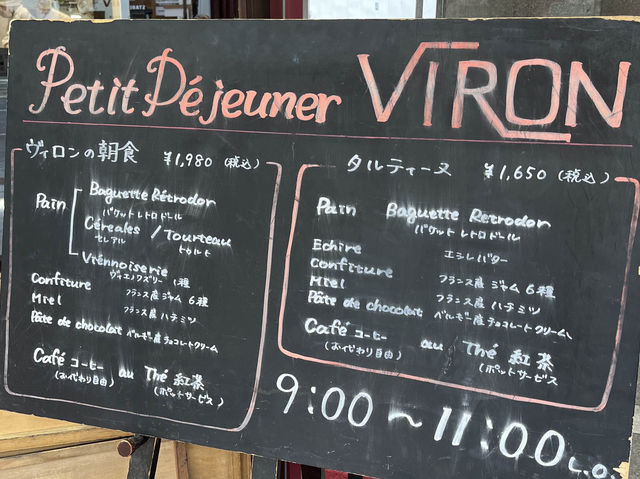 Petit Déjeuner VIRON
ヴィロンの朝食 ¥1,980 (税込)
Pain
Baguette Rétrodor
バゲット レトロドール
Céréales / Tourteau
セレアル トゥルト
Viennoiserie
ヴィエノワズリー 1種
Confiture フランス産 ジャム 6種
Miel フランス産 ハチミツ
Pâte de chocolat ベルギー産 チョコレートクリーム
Café コーヒー au Thé 紅茶
(おかわり自由) (ポットサービス)
タルティーヌ ¥1,650 (税込)
Pain Baguette Retrodor
バゲット レトロドール
Echire エシレバター
Confiture フランス産 ジャム 6種
Miel フランス産 ハチミツ
Pâte de chocolat ベルギー産 チョコレートクリーム
Café コーヒー au Thé 紅茶
(おかわり自由) (ポットサービス)
9:00～11:00 L.O.